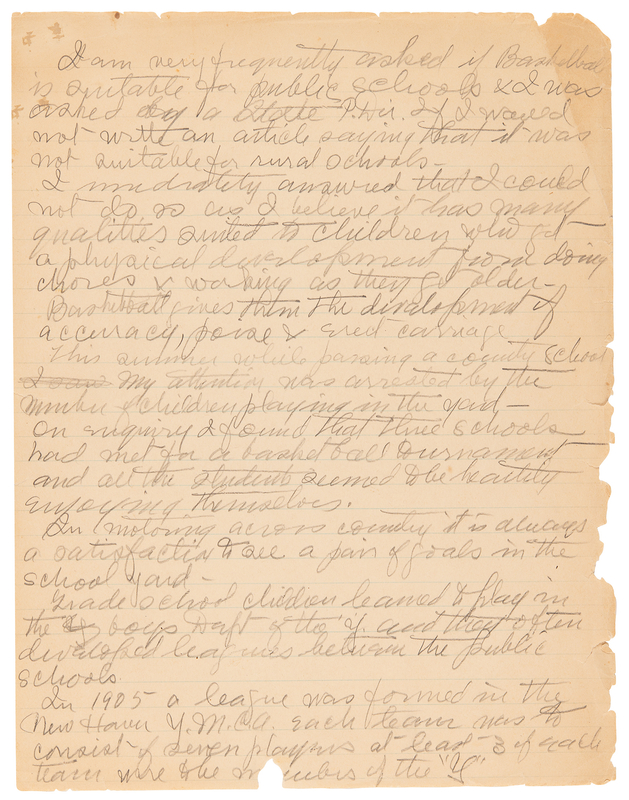 I am very frequently asked if Basketball
is suitable for public schools & I was
asked by a State P. Dir. if I would
not write an article saying that it was
not suitable for rural schools -
I imediatly answered that I could
not do so as I believe it has many
qualities suited to children who get
a physical development from doing
chores & working as they get older -
Basketball gives them the development of
accuracy, poise & erect carriage
This summer while passing a county school
I saw My attention was arrested by the
number of children playing in the yard -
On enquiry I found that three schools
had met for a basket ball tournament
and all the students seemed to be heartily
enjoying themselves.
In motoring across country it is always
a satisfaction to see a pair of goals in the
school yard -
Grade school children learned to play in
the boys Dept of the Y. and they often
developed leagues between the public
schools.
In 1905 a league was formed in the
New Haven Y.M.C.A. each team was to
consist of seven players at least 3 of each
team were to be members of the "Y"